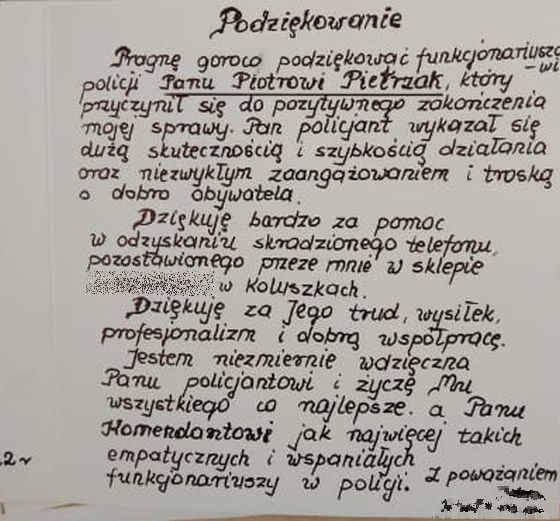 Podziękowanie
Pragnę gorąco podziękować funkcjonariuszo
-wi
policji Panu Piotrowi Pietrzak, który
przyczynił się do pozytywnego zakończenia
mojej sprawy. Pan policjant wykazał się
dużą skutecznością i szybkością działania
oraz niezwykłym zaangażowaniem i troską
o dobro obywatela.
Dziękuję bardzo za pomoc
w odzyskaniu skradzionego telefonu,
pozostawionego przeze mnie w sklepie
w Koluszkach.
Dziękuję za Jego trud, wysiłek,
profesjonalizm i dobrą współpracę.
Jestem niezmiernie wdzięczna
Panu policjantowi i życzę Mu
wszystkiego co najlepsze. a Panu
Komendantowi jak najwięcej takich
empatycznych i wspaniałych
funkcjonariuszy w policji. Z poważaniem
2r